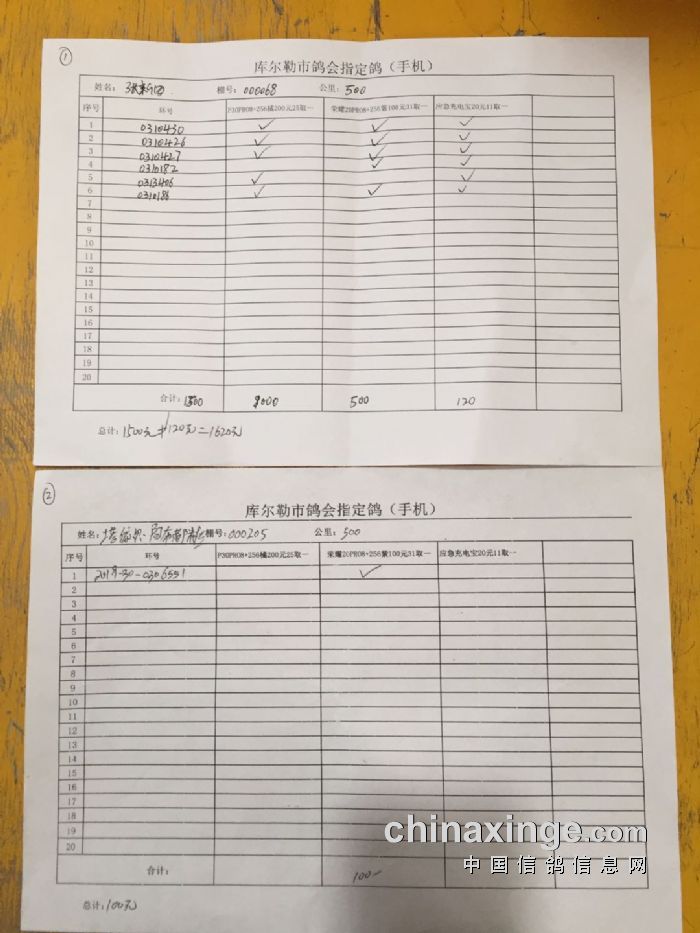 ①
库尔勒市鸽会指定鸽（手机）
姓名： 棚号：000068 公里：500
序号 环号 P30PRO8+256橘200元25取一 荣耀20PRO8+256紫100元31取一 应急充电宝20元11取一
1 0310430 ✓ ✓ ✓
2 0310426 ✓ ✓ ✓
3 0310427 ✓ ✓ ✓
4 0310182 ✓ ✓
5 0313406 ✓ ✓
6 0310186 ✓ ✓ ✓
7
8
9
10
11
12
13
14
15
16
17
18
19
20
合计： 1500 1000 500 120
总计：1500元+120元=1620元
②
库尔勒市鸽会指定鸽（手机）
姓名： 棚号：000205 公里：500
序号 环号 P30PRO8+256橘200元25取一 荣耀20PRO8+256紫100元31取一 应急充电宝20元11取一
1 2018-30-0306551 ✓
2
3
4
5
6
7
8
9
10
11
12
13
14
15
16
17
18
19
20
合计： 100-
总计：100元
chinaxinge.com
中国信鸽信息网